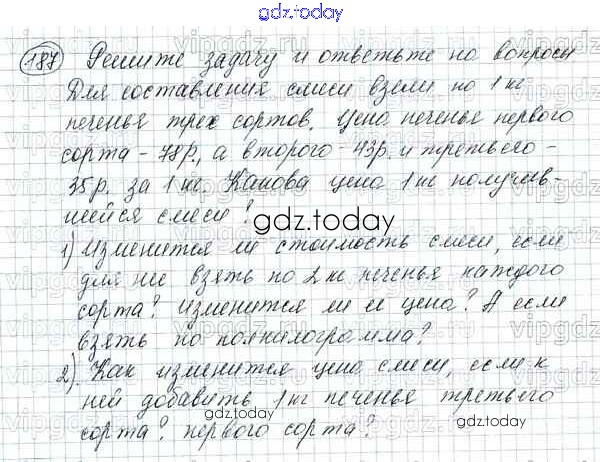 gdz.today
187 Решите задачу и ответьте на вопросы
Для составления смеси взяли по 1 кг
печенья трех сортов. Цена печенья первого
сорта - 78р., а второго - 43р. и третьего -
35р. за 1 кг. Какова цена 1 кг получив-
шейся смеси?
gdz.today
1) Изменится ли стоимость смеси, если
для нее взять по 2 кг печенья каждого
сорта? Изменится ли ее цена? А если
взять по полкилограмма?
2). Как изменится цена смеси, если к
ней добавить 1 кг печенья третьего
gdz.today gdz.today
сорта? первого сорта?